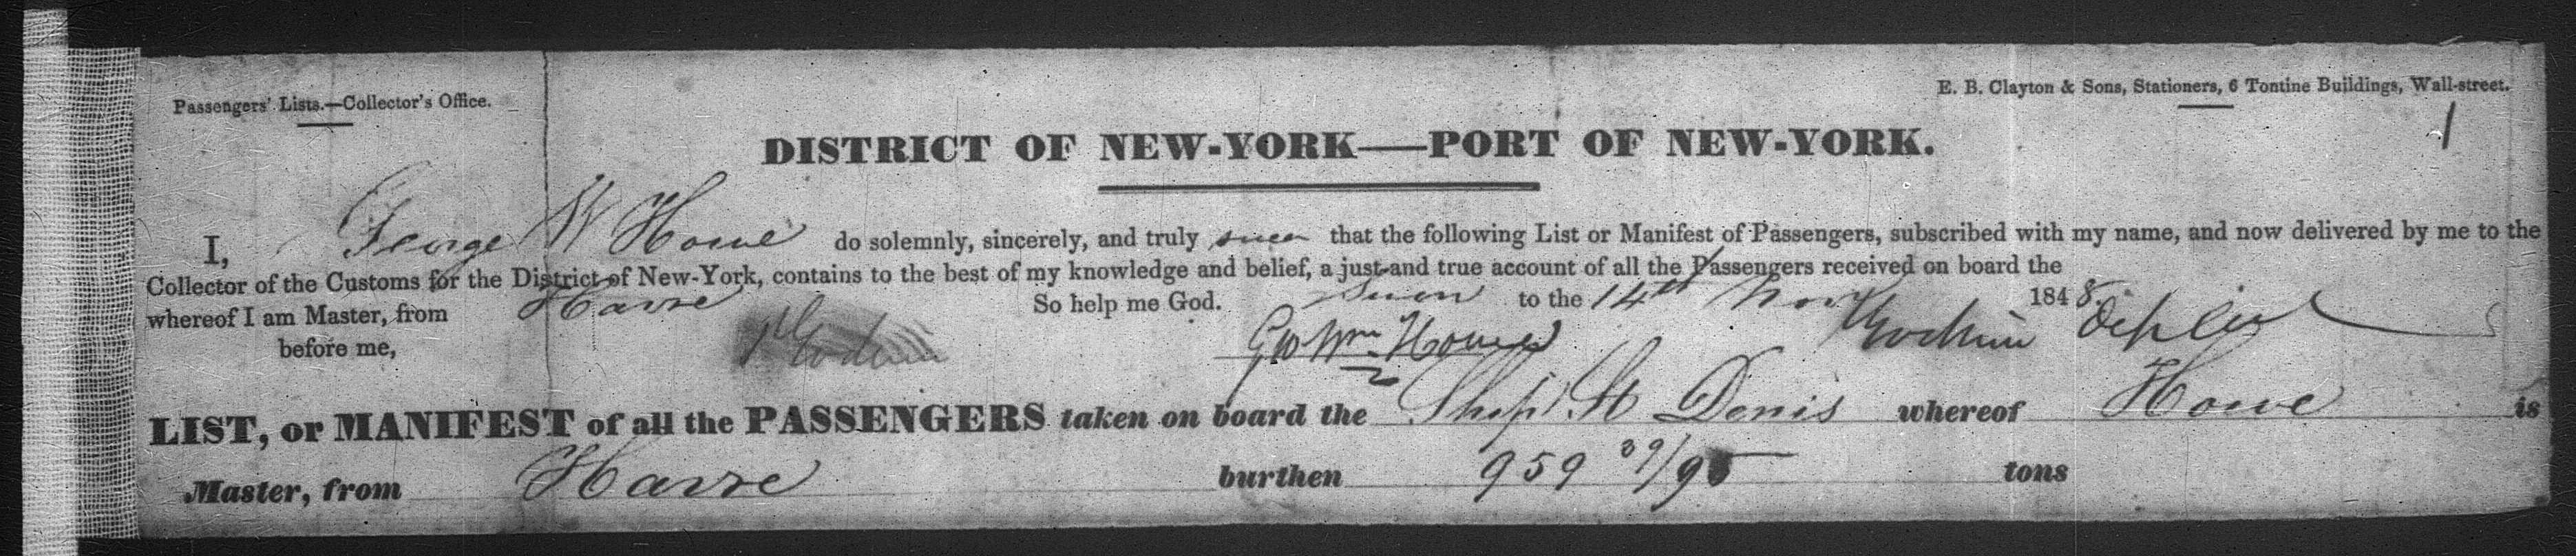 Passengers' Lists.—Collector's Office.
E. B. Clayton & Sons, Stationers, 6 Tontine Buildings, Wall-street.
1
DISTRICT OF NEW-YORK—PORT OF NEW-YORK.
I, George W Howe do solemnly, sincerely, and truly swear that the following List or Manifest of Passengers, subscribed with my name, and now delivered by me to the
Collector of the Customs for the District of New-York, contains to the best of my knowledge and belief, a just and true account of all the Passengers received on board the
whereof I am Master, from Havre So help me God. Sworn to the 14th Nov 1848.
before me, Howe
LIST, or MANIFEST of all the PASSENGERS taken on board the Ship St Denis whereof Howe is
Master, from Havre burthen 959 39/95 tons